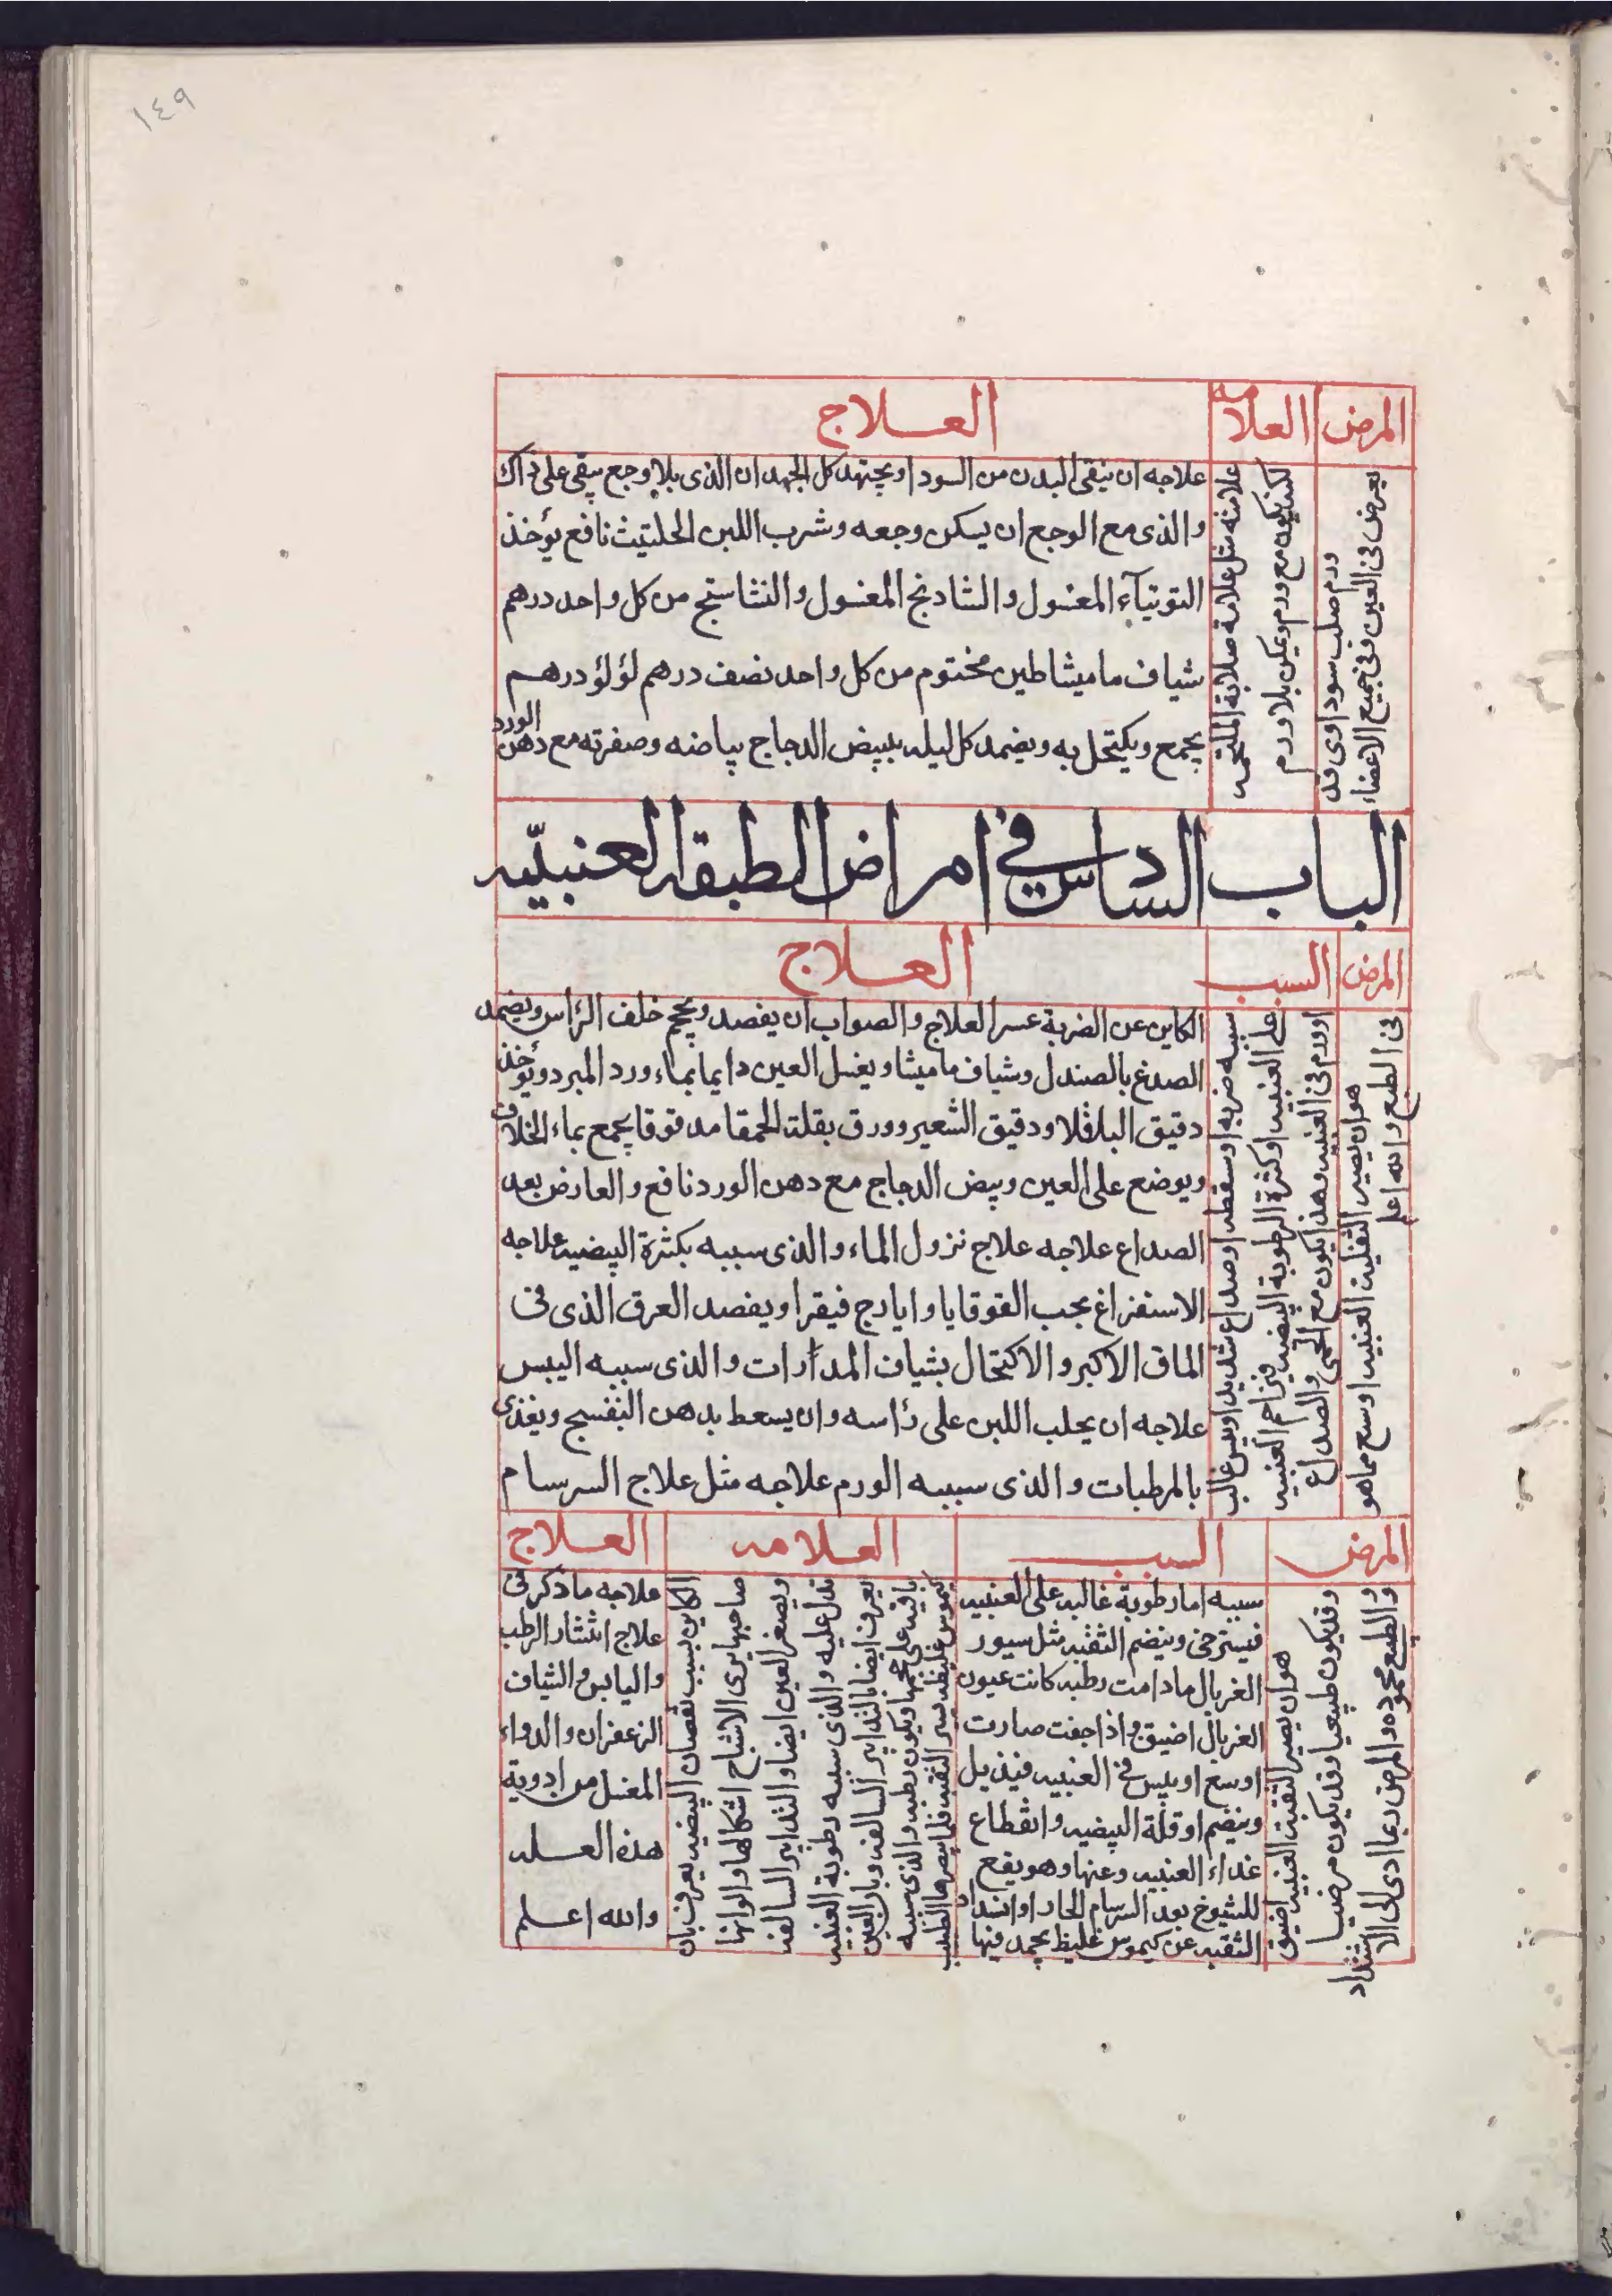 ١٤٩
المرض
العلامه
العلاج
ورم صلب سوداوى قد
يعرض فى العين وفى جميع الاعضاء
علامته مثل علامة صلابة الملتحمه
لكن يكون مع ورم ويمكن بلا ورم
علاجه ان ينقى البدن من السودا ويجتهد كل الجهد ان الذى بلا وجع يبقى على ذاك
والذى مع الوجع ان يسكن وجعه وشرب اللبن الحليب نافع يؤخذ
التوتيآء المغسول والشادنج المغسول والنشاستج من كل واحد درهم
شياف ماميثا طين مختوم من كل واحد نصف درهم لؤلؤ درهم
يجمع ويكتحل به ويضمد كل ليله ببيض الدجاج بياضه وصفرته مع دهن الورد
الباب السادس فى امراض الطبقه العنبيّه
المرض
السبب
العلاج
هو ان يصير الثقب العنبيه اوسع مما هو
فى الطبع والله اعلم
سببه ضربه او سقطه او صداع شديد او يبس غالب
على العنبيه او كثرة الرطوبة البيضيه فيزاحم العنبيه
او ورم فى العنبيه وهذا يكون مع الحمى والصداع
الكاين عن الضربة عسر العلاج والصواب ان يفصد ويحجم خلف الرأس ويضمد
الصدغ بالصندل وشياف ماميثا ويغسل العين دايما بماء ورد المبرد ويؤخذ
دقيق الباقلا ودقيق الشعير وورق بقلة الحمقا مدقوقا يجمع بماء الخلاف
ويوضع على العين وبيض الدجاج مع دهن الورد نافع والعارض بعد
الصداع علاجه علاج نزول الماء والذى سببه بكثرة البيضيه علاجه
الاستفراغ بحب القوقايا وايارج فيقرا ويفصد العرق الذى فى
الماق الاكبر والاكتحال بشياف المدارات والذى سببه اليبس
علاجه ان يحلب اللبن على رأسه وان يسعط بدهن البنفسج ويغذى
بالمرطبات والذى سببه الورم علاجه مثل علاج السرسام
المرض
السبب
العلامه
العلاج
هو ان يصير الثقب العنبيه اضيق
وقد يكون طبيعيا وقد يكون مرضيا
والطبيع محموده والمرض ربما ادى الى الانسداد
سببه اما رطوبة غالبه على العنبيه
فيسترخى وينضم الثقبه مثل سيور
الغربال ما دامت رطبه كانت عيون
الغربال اضيق واذا جفت صارت
اوسع او يبس فى العنبيه فيذيل
وينضم او قلة البيضيه وانقطاع
غداء العنبيه وعنها وهو يقع
للشيوخ بعد السرسام الحار او انسداد
الثقبه عن كيموس غليظ يجمد فيها
الكاين بسبب نقصان البيضيه يعرف بان
صاحبها يرى الاشباح اشكالها والوانها
ويصغر العين ايضا والتدابير السالفه
تدل عليه والذى سببه رطوبة العنبيه
يعرف ايضا بالتدابير السالفه وبان العين
باقيه على حجمها ويكون رطبه والذى سببه
كيموس غليظ يسد الثقبه فلما يبصرها الطبيب
علاجه ما ذكر فى
علاج انتشار الرطب
واليابس والشياف
الزعفران والدواء
المغسل من ادوية
هذه العله
والله اعلم